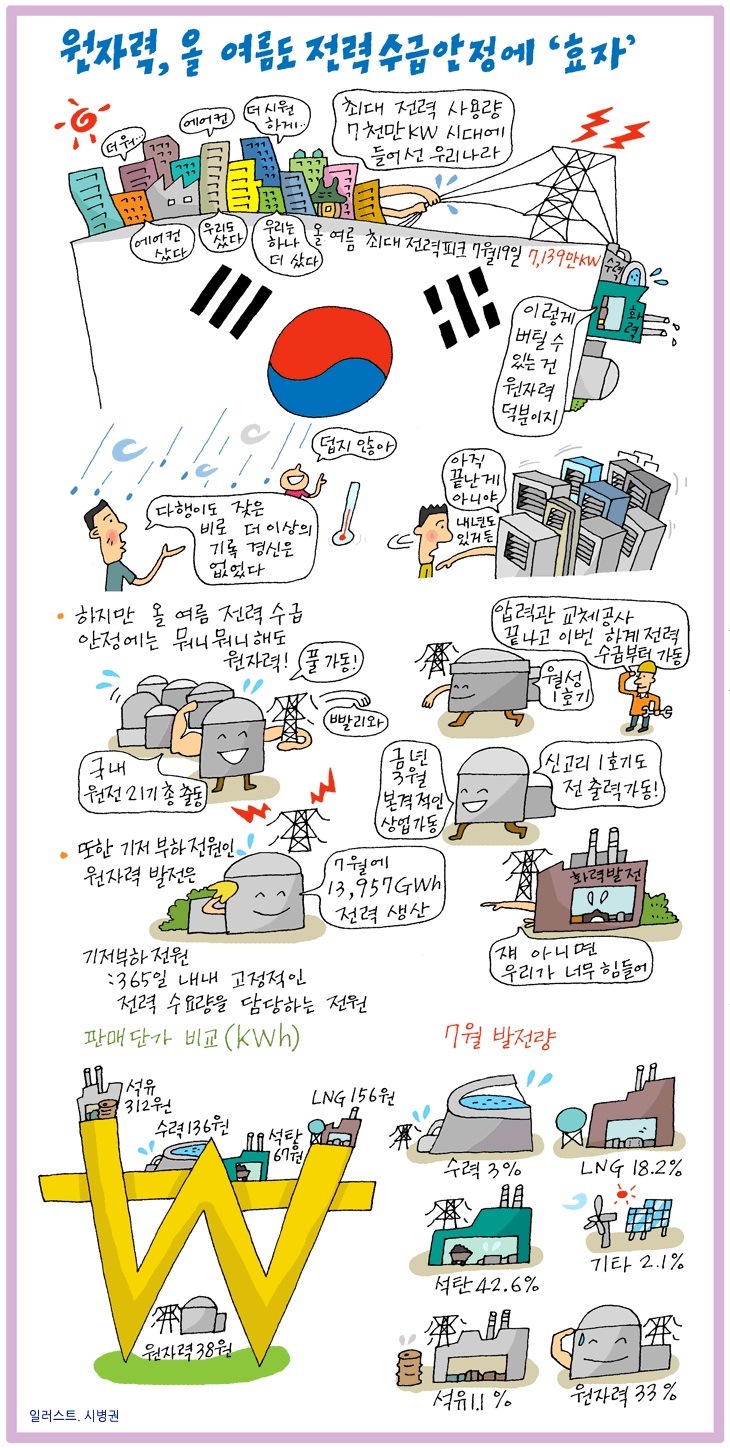 원자력, 올 여름도 전력수급안정에 ‘효자’
더워...
에어컨
더 시원
하게..
최대 전력 사용량
7천만KW 시대에
들어선 우리나라
에어컨
샀다
우리도
샀다
우리는
하나
더 샀다
올 여름 최대 전력피크 7월19일 7,139만KW
수력
화력
이렇게
버틸 수
있는 건
원자력
덕분이지
덥지 않아
다행이도 잦은
비로 더 이상의
기록 경신은
없었다
아직
끝난게
아니야
내년도
있거든
• 하지만 올 여름 전력 수급
안정에는 뭐니뭐니해도
원자력!
풀 가동!
빨리와
국내
원전 21기 총 출동
압력관 교체공사
끝나고 이번 하계전력
수급부터 가동
월성
1호기
금년
3월
본격적인
상업가동
신고리 1호기도
전 출력가동!
• 또한 기저 부하전원인
원자력 발전은
7월에
13,957GWh
전력 생산
화력발전
쟤 아니면
우리가 너무 힘들어
기저부하전원
:365일 내내 고정적인
전력 수요량을 담당하는 전원
판매단가 비교(KWh)
석유
312원
수력136원
석탄
67원
LNG 156원
원자력 38원
7월 발전량
수력 3%
LNG 18.2%
석탄42.6%
기타 2.1%
석유1.1%
원자력 33%
일러스트. 시병권